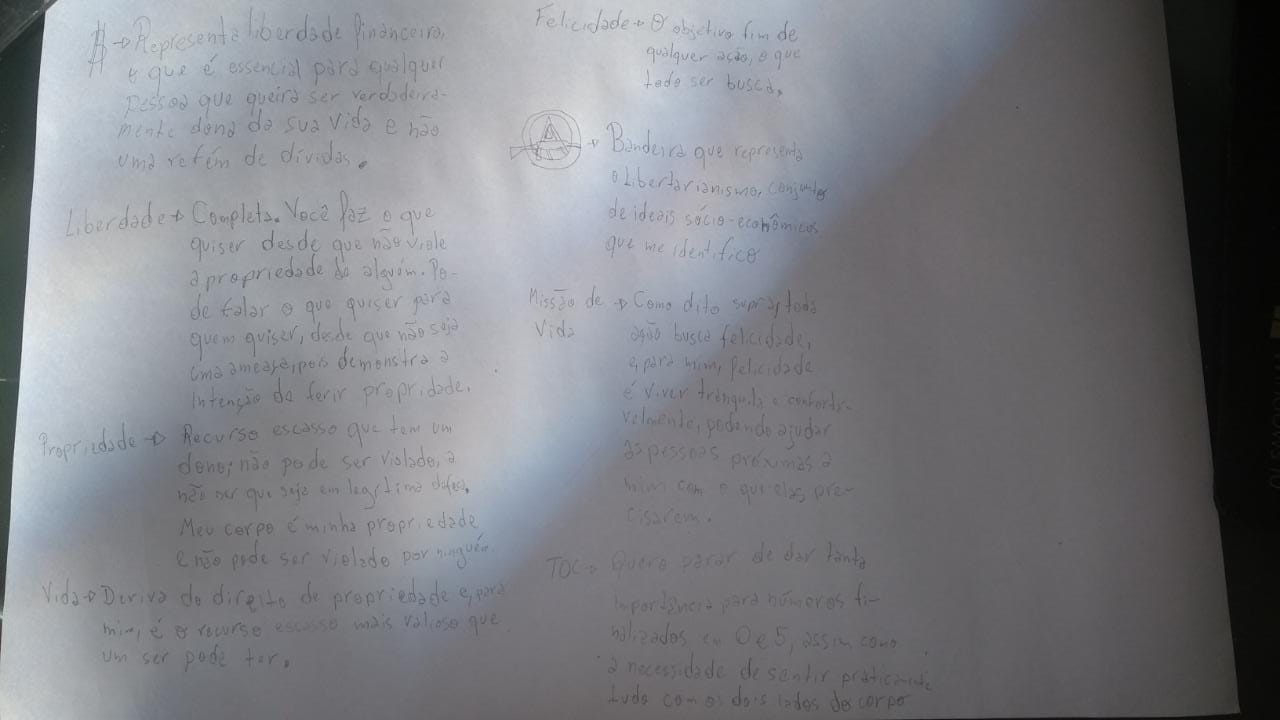 $ → Representa liberdade financeira,
o que é essencial para qualquer
pessoa que queira ser verdadeira-
mente dona da sua vida e não
uma refém de dívidas.
Liberdade → Completa. Você faz o que
quiser desde que não viole
a propriedade de alguém. Po-
de falar o que quiser para
quem quiser, desde que não seja
uma ameaça, pois demonstra a
intenção de ferir propridade.
Propriedade → Recurso escasso que tem um
dono; não pode ser violado, a
não ser que seja em legítima defesa.
Meu corpo é minha propriedade
e não pode ser violado por ninguém.
Vida → Deriva do direito de propriedade e, para
mim, é o recurso escasso mais valioso que
um ser pode ter.
Felicidade → O objetivo fim de
qualquer ação, o que
todo ser busca.
→ Bandeira que representa
o Libertarianismo, conjuntos
de ideais sócio-econômicos
que me identifico
Missão de → Como dito supra, toda
Vida ação busca felicidade,
e, para mim, felicidade
é viver tranquila e conforta-
velmente, podendo ajudar
as pessoas próximas a
mim com o que elas pre-
cisarem.
TOC → Quero parar de dar tanta
importância para números fi-
nalizados em 0 e 5, assim como
a necessidade de sentir praticamente
tudo com os dois lados do corpo